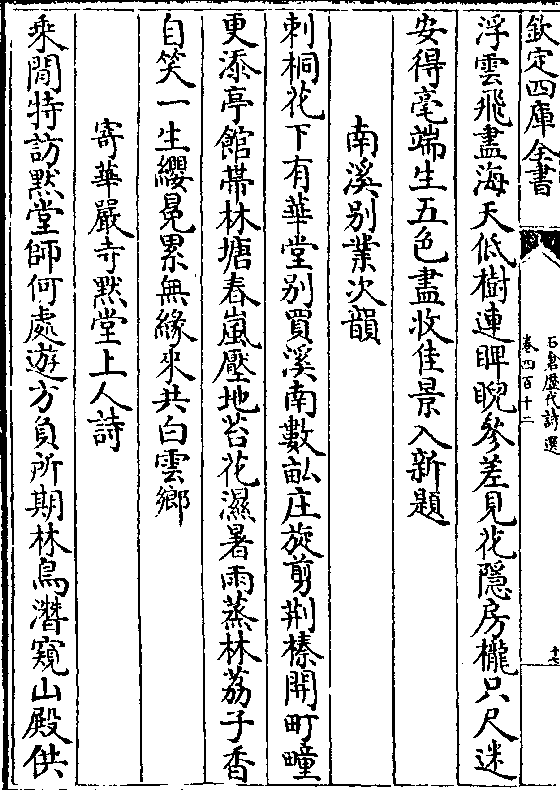 欽定四庫全書
石倉歷代詩選
卷四百十二
浮雲飛盡海天低樹連睥睨參差見花隱房櫳只尺迷
安得毫端生五色盡收佳景入新題
南溪别業次韻
刺桐花下有華堂别買溪南數畝庄旋剪荆榛開町疃
更添亭館帶林塘春嵐壓地苔花濕暑雨蒸林荔子香
自笑一生纓冕累無緣来共白雲鄉
寄華嚴寺黙堂上人詩
乘閒特訪黙堂師何處遊方負所期林鳥潛窺山殿供